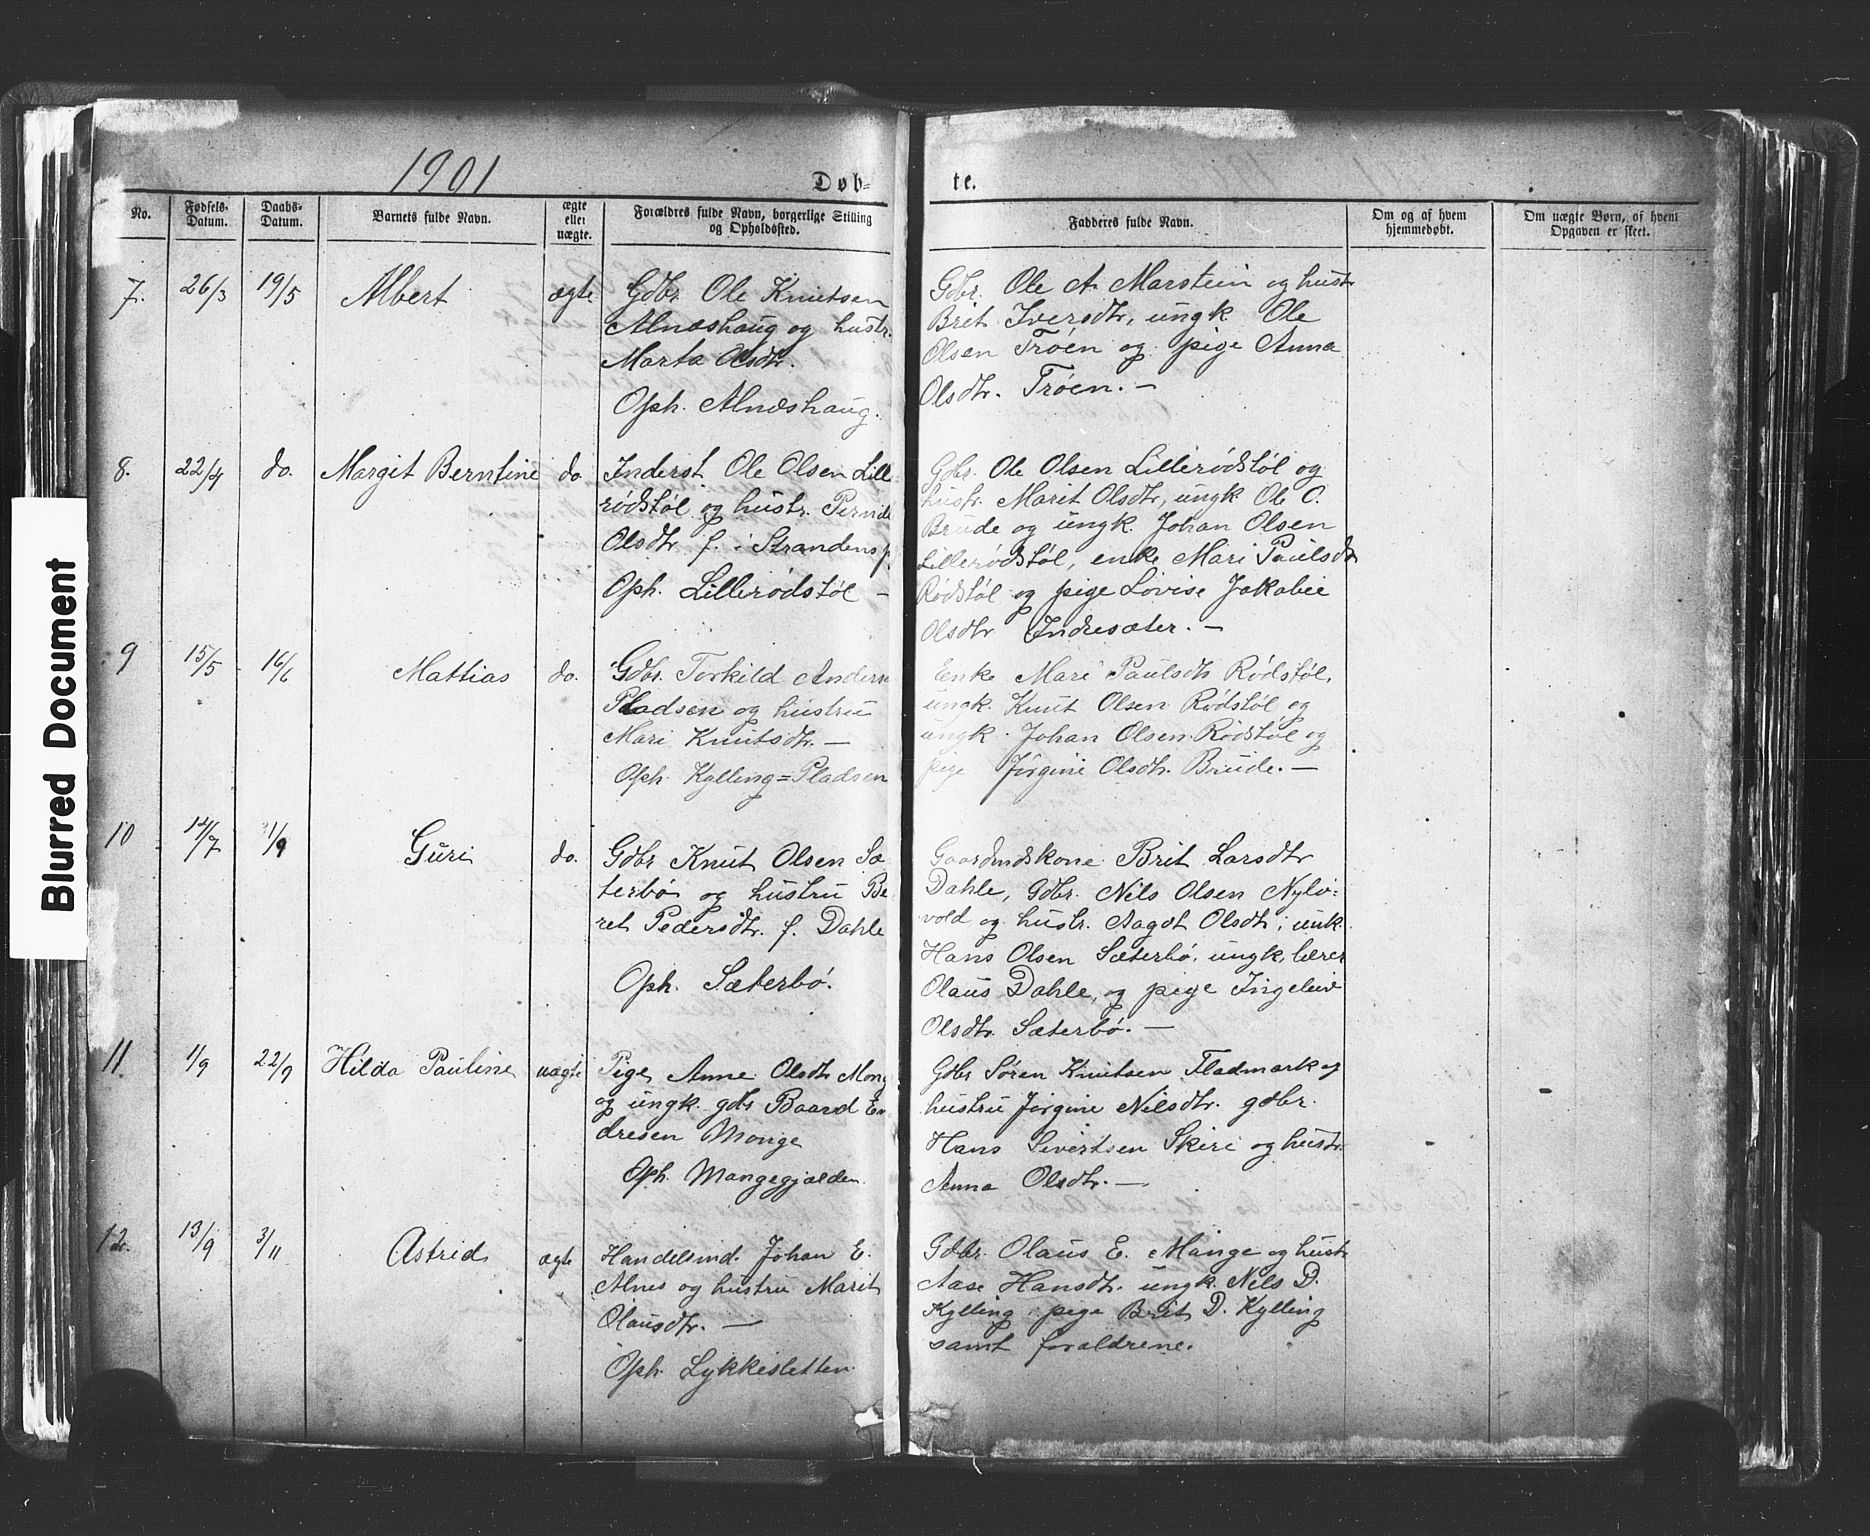 Blurred Document
1901
Døb-
te.
No.
Fødsels-
Datum.
Daabs-
Datum.
Barnets fulde Navn.
ægte
eller
uægte.
Forældres fulde Navn, borgerlige Stilling
og Opholdssted.
Fadderes fulde Navn.
Om og af hvem
hjemmedøbt.
Om uægte Børn, af hvem
Opgaven er skeet.
7. 26/3 19/5 Albert ægte
Gdbr. Ole Knutsen
Alnæshaug og hustr.
Marta Olsdtr.
Oph. Alnæshaug.
Gdbr. Ole A. Marstein og hustr
Brit Iversdtr, ungk. Ole
Olsen Trøen og pige Anna
Olsdtr. Trøen. —
8. 22/4 do. Margit Berntine do.
Inderst. Ole Olsen Lille-
rødstøl og hustr.
Olsdtr. f. i Strandens
Oph. Lillerødstøl —
Gdbr. Ole Olsen Lillerødstøl og
hustr. Marit Olsdtr, ungk. Ole O.
Brude og ungk. Johan Olsen
Lillerødstøl, enke Mari Paulsdtr
Rødstøl og pige Lovise Jakobie
Olsdtr Indresæter. —
9 15/5 16/6 Mattias do.
Gdbr. Torkild Anders
Pladsen og hustru
Mari Knutsdtr. —
Oph. Kylling=Pladsen
Enke Mari Paulsdtr Rødstøl,
ungk. Knut Olsen Rødstøl og
ungk. Johan Olsen Rødstøl og
pige Jørgine Olsdtr. Brude. —
10 /7 /9 Guri do.
Gdbr Knut Olsen Sæ
terbø og hustru Be
ret Pedersdtr. f. Dahle
Oph. Sæterbø.
Gaardmdskone Brit Larsdtr
Dahle, Gdbr. Nils Olsen Nylø-
vold og hustr. Aagot Olsdtr, unk.
Hans Olsen Sæterbø, ungk. lærer
Olaus Dahle, og pige Ingeleiv
Olsdtr. Sæterbø. —
11. 1/9 22/9 Hilda Pauline uægte
Pige Anne Olsdtr Mong
og ungk. gdbr Baard En
dresen Monge
Oph. Mongegjælden.
Gdbr Søren Knutsen Fladmark og
hustru Jørgine Nilsdtr. gdbr.
Hans Sivertsen Skiri og hustr.
Anna Olsdtr. —
12. 13/9 3/11 Astrid ægte
Handelsmd. Johan E.
Alnes og hustru Marit
Olausdtr. —
Oph. Lykkesletten
Gdbr. Olaus E. Monge og hustr
Aase Hansdtr. ungk. Nils D.
Kylling, pige Brit D. Kylling
samt forældrene.